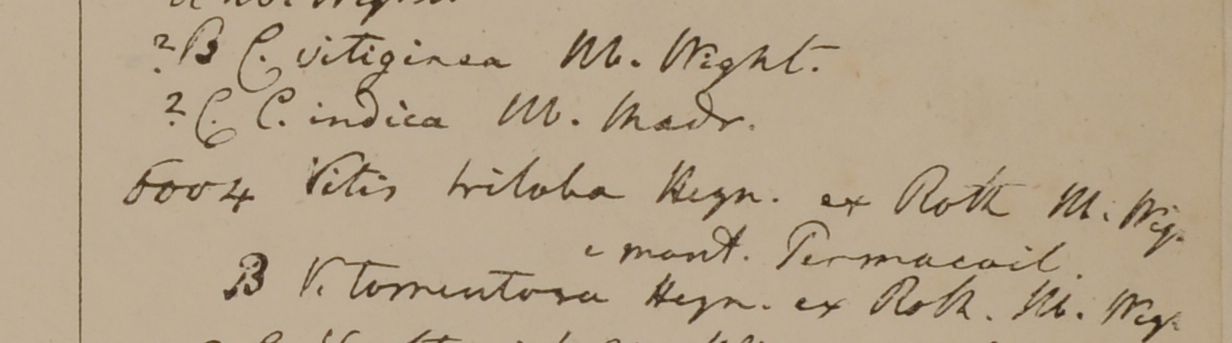 ?B C. vitiginea M. Wight.
?C. C. indica M. Madr.
6004 Vitis triloba Heyn. ex Roth M. Wig.
e mont. Permacoil.
B V. tomentosa Heyn. ex Roth. M. Wig.